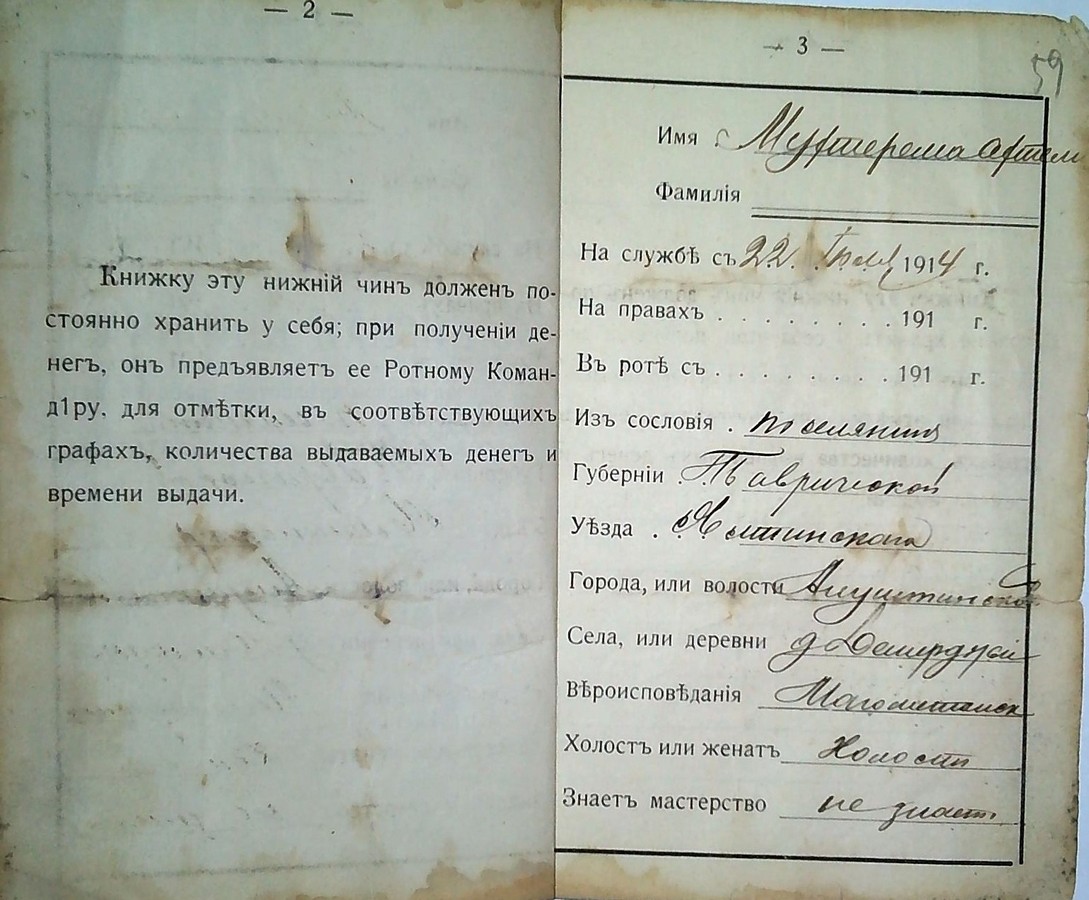 — 2 —
Книжку эту нижній чинъ долженъ по-
стоянно хранить у себя; при полученіи де-
негъ, онъ предъявляетъ ее Ротному Коман-
д1ру. для отмѣтки, въ соотвѣтствующихъ
графахъ, количества выдаваемыхъ денегъ и
времени выдачи.
— 3 —
59
Имя
Фамилія
На службѣ съ 22 1914 г.
На правахъ . . . . . . . . 191 г.
Въ ротѣ съ . . . . . . . . 191 г.
Изъ сословія . поселянинъ
Губерніи . Таврической
Уѣзда . Ялтинскаго
Города, или волости Алуштинской
Села, или деревни д Демирджи
Вѣроисповѣданія Магометанск
Холостъ или женатъ Холостъ
Знаетъ мастерство не знаетъ